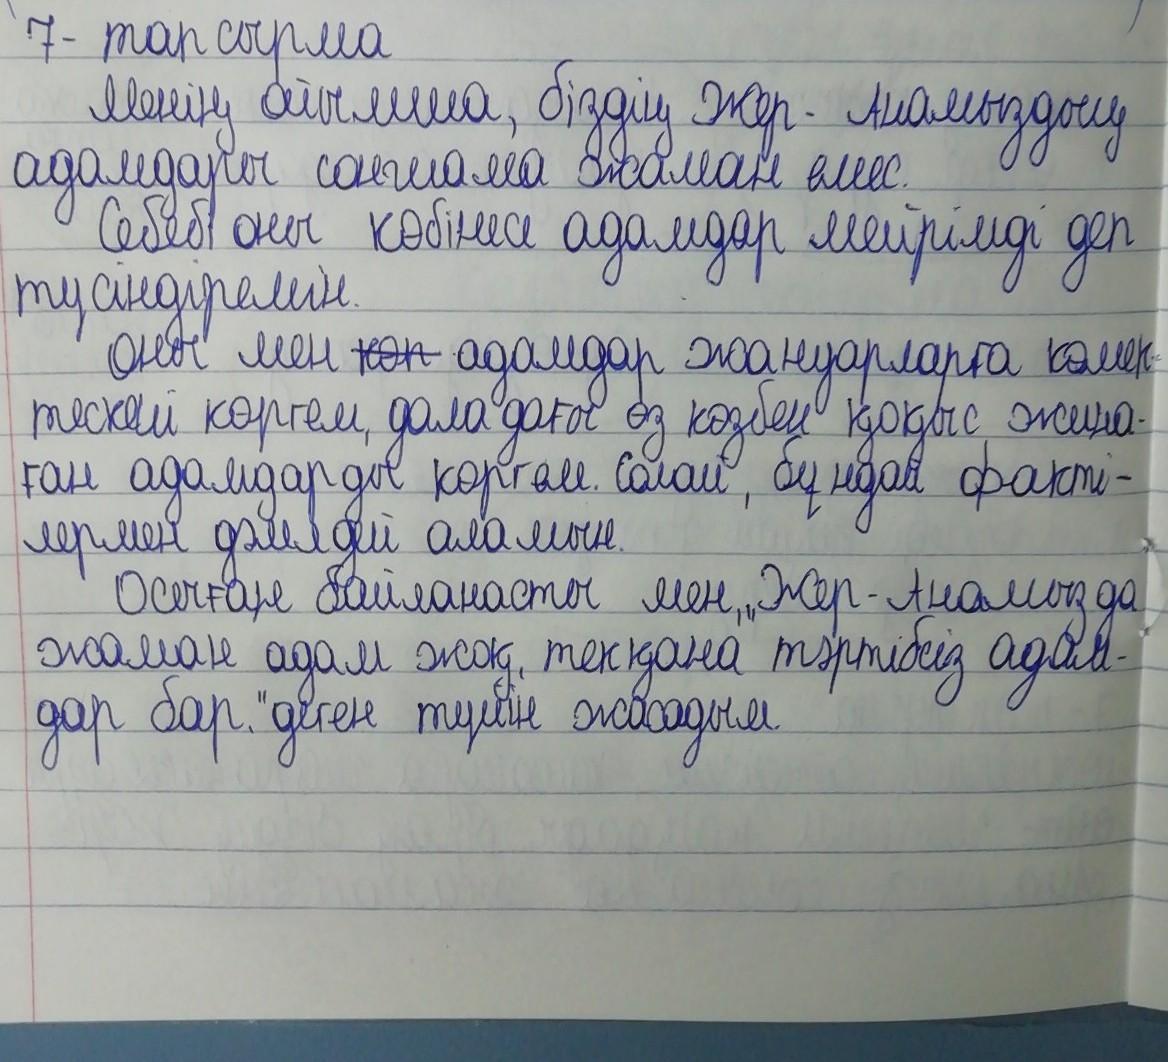 7- тапсырма
Менің ойымша, біздің Жер- Анамыздың
адамдары соншама жаман емес.
Себебі оны көбінесе адамдар мейрімді деп
түсіндіремін.
Оны мен көп адамдар жануарларға көмек-
тескей көргем, даладағы өз көзбен қоқыс жина-
ған адамдарды көргем. Солай, бұндай факті-
лермен дәлелдей аламын.
Осыған байланасты мен, „Жер-Анамызда
жаман адам жоқ, тек қана тәртібсіз адам-
дар бар." деген түйін жасадым.